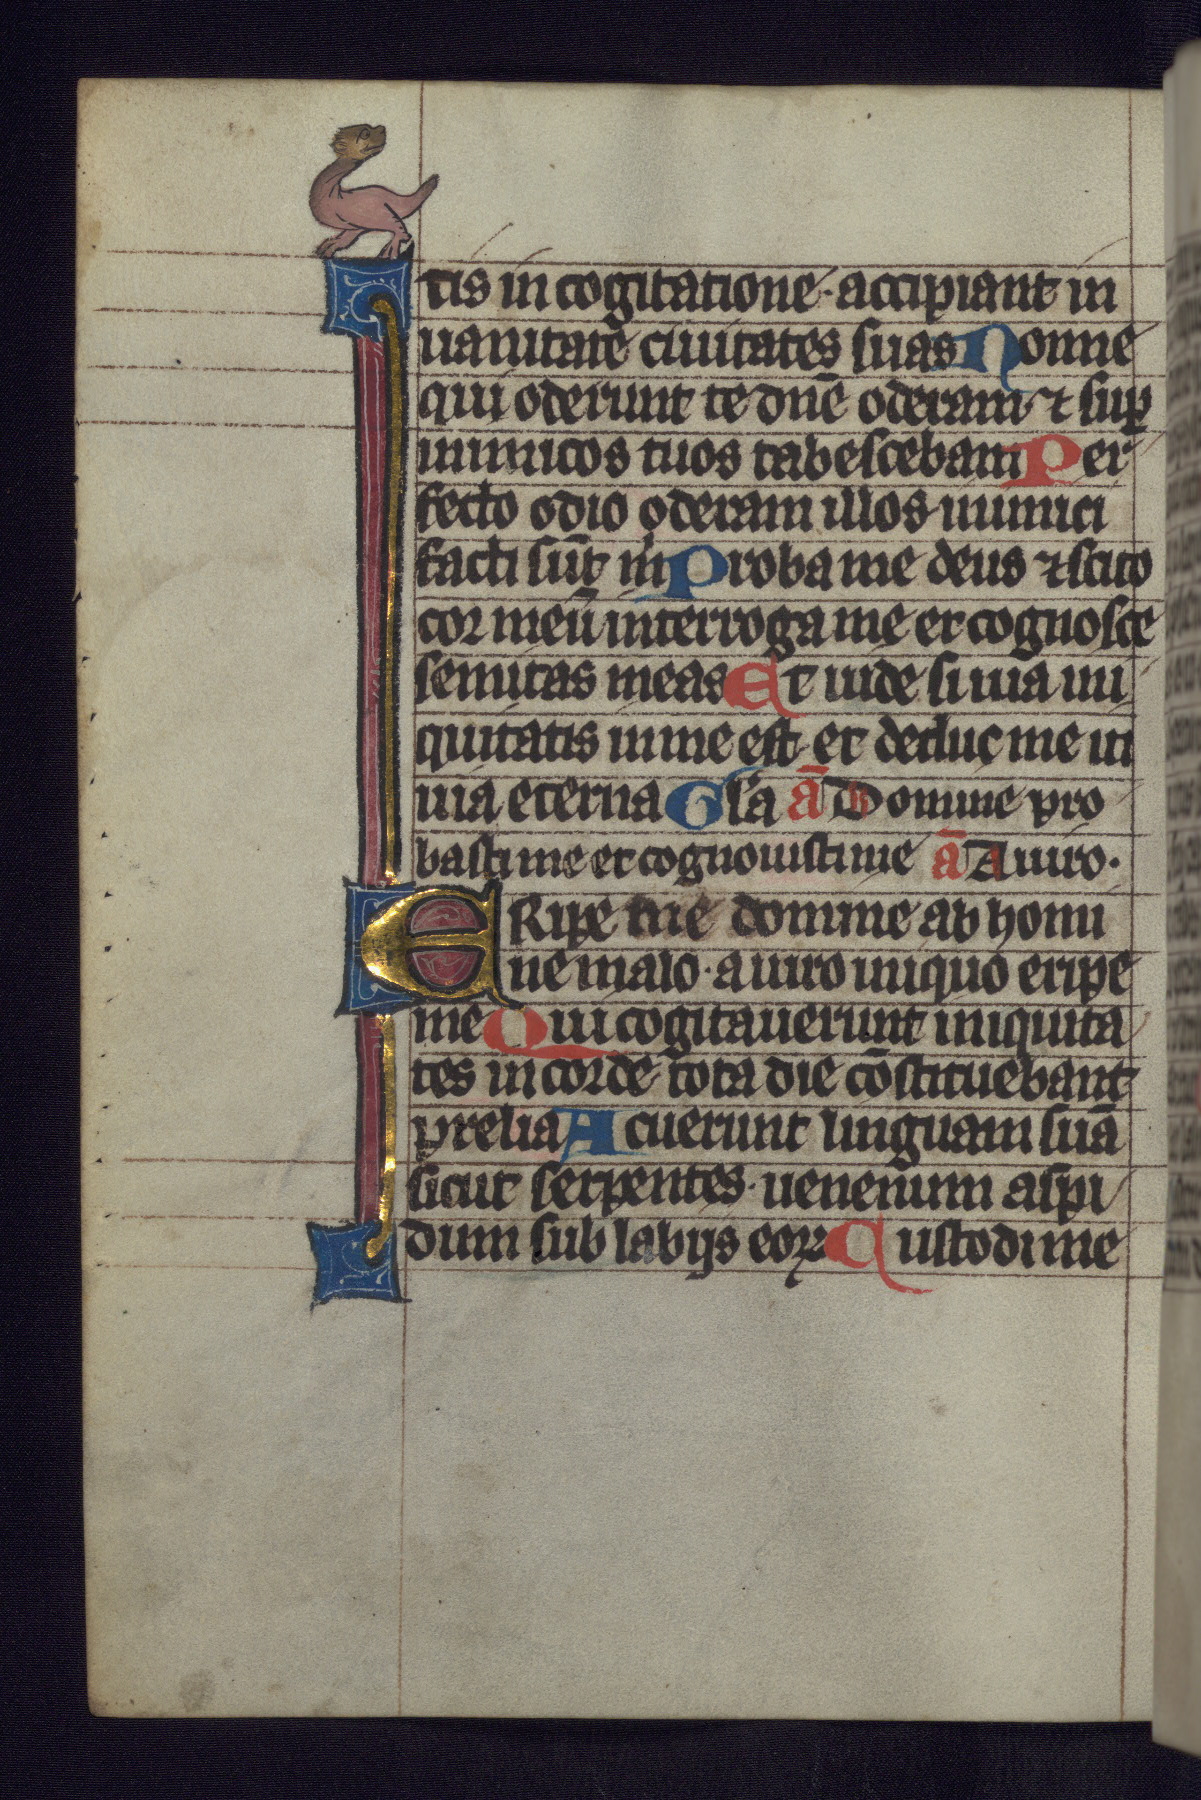 tis in cogitatione · accipiant in
uanitate ciuitates suas Nonne
qui oderunt te dn̄e oderam ⁊ sup̲
inimicos tuos tabescebam Per
fecto odio oderam illos inimici
facti sūt m̄ Proba me deus ⁊ scito
cor meū interroga me et cognosce
semitas meas Et uide si uia ini
quitatis in me est et deduc me in
uia eterna Gl̄a ā Domine pro
basti me et cognouisti me ā A uiro ·
Eripe me domine ab homi
ne malo · a uiro iniquo eripe
me Qui cogitauerunt iniquita
tes in corde tota die cōstituebant
prelia Acuerunt linguam suā
sicut serpentes · uenenum aspi
dum sub labijs eoꝝ Custodi me